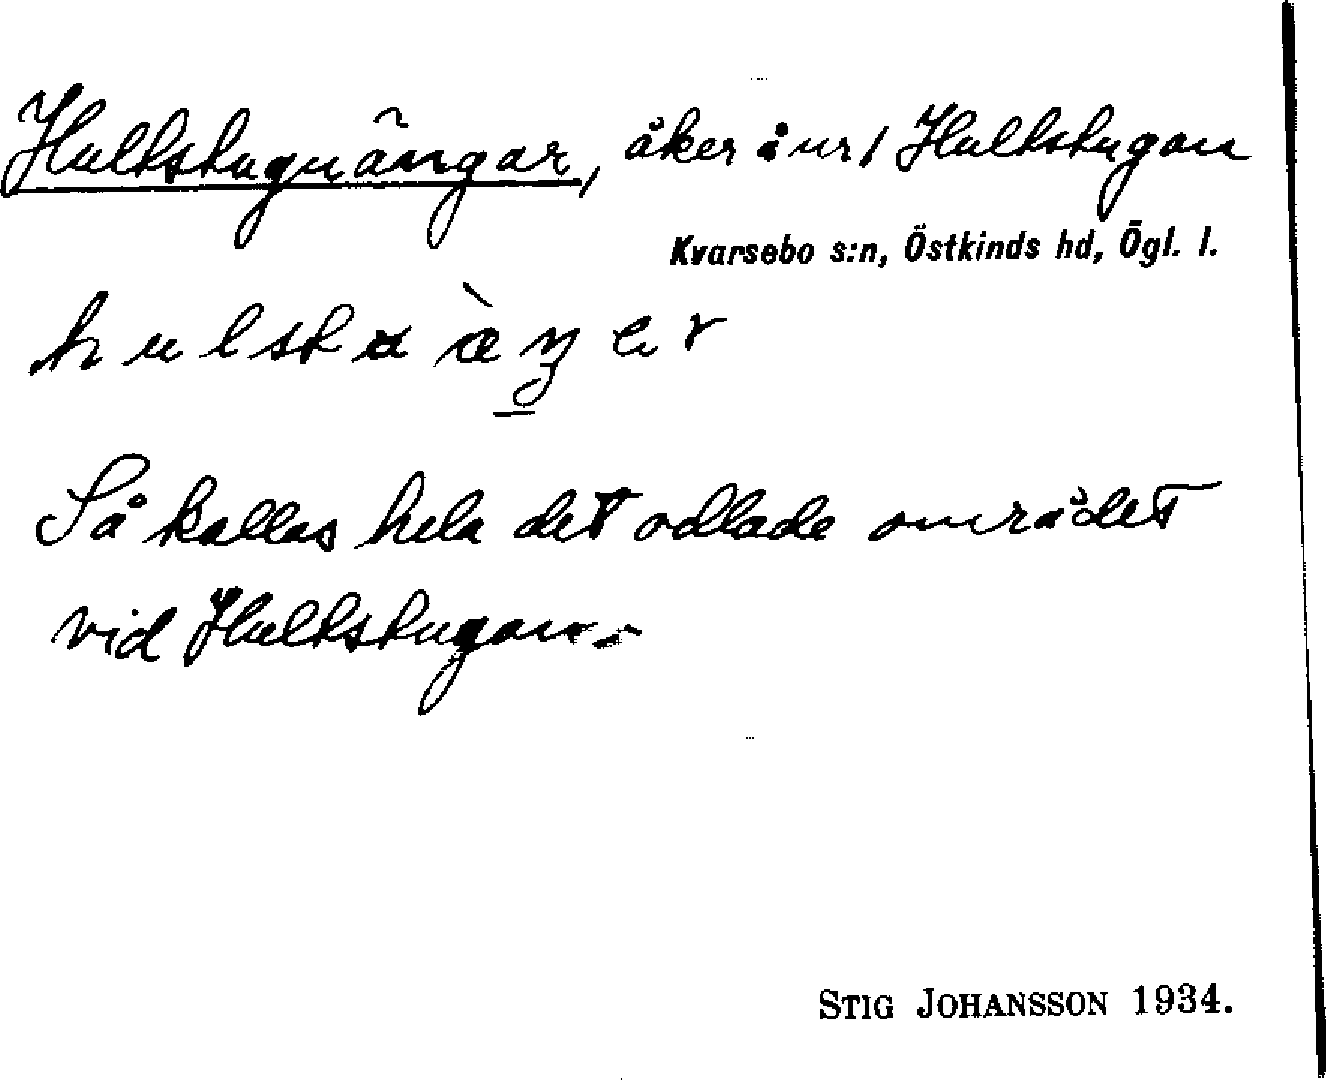 Hultstuguängar, åker å nr 1 Hultstugan
Kvarsebo s:n, Östkinds hd, Ögl. l.
Så kallas hela det odlade området
vid Hultstugan.
STIG JOHANSSON 1934.